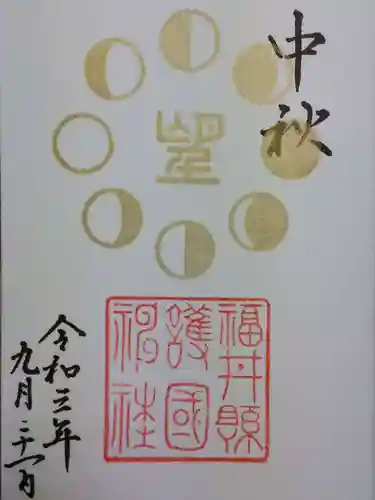 中秋
望
福井縣
護國
神社
令和三年
九月二十一日